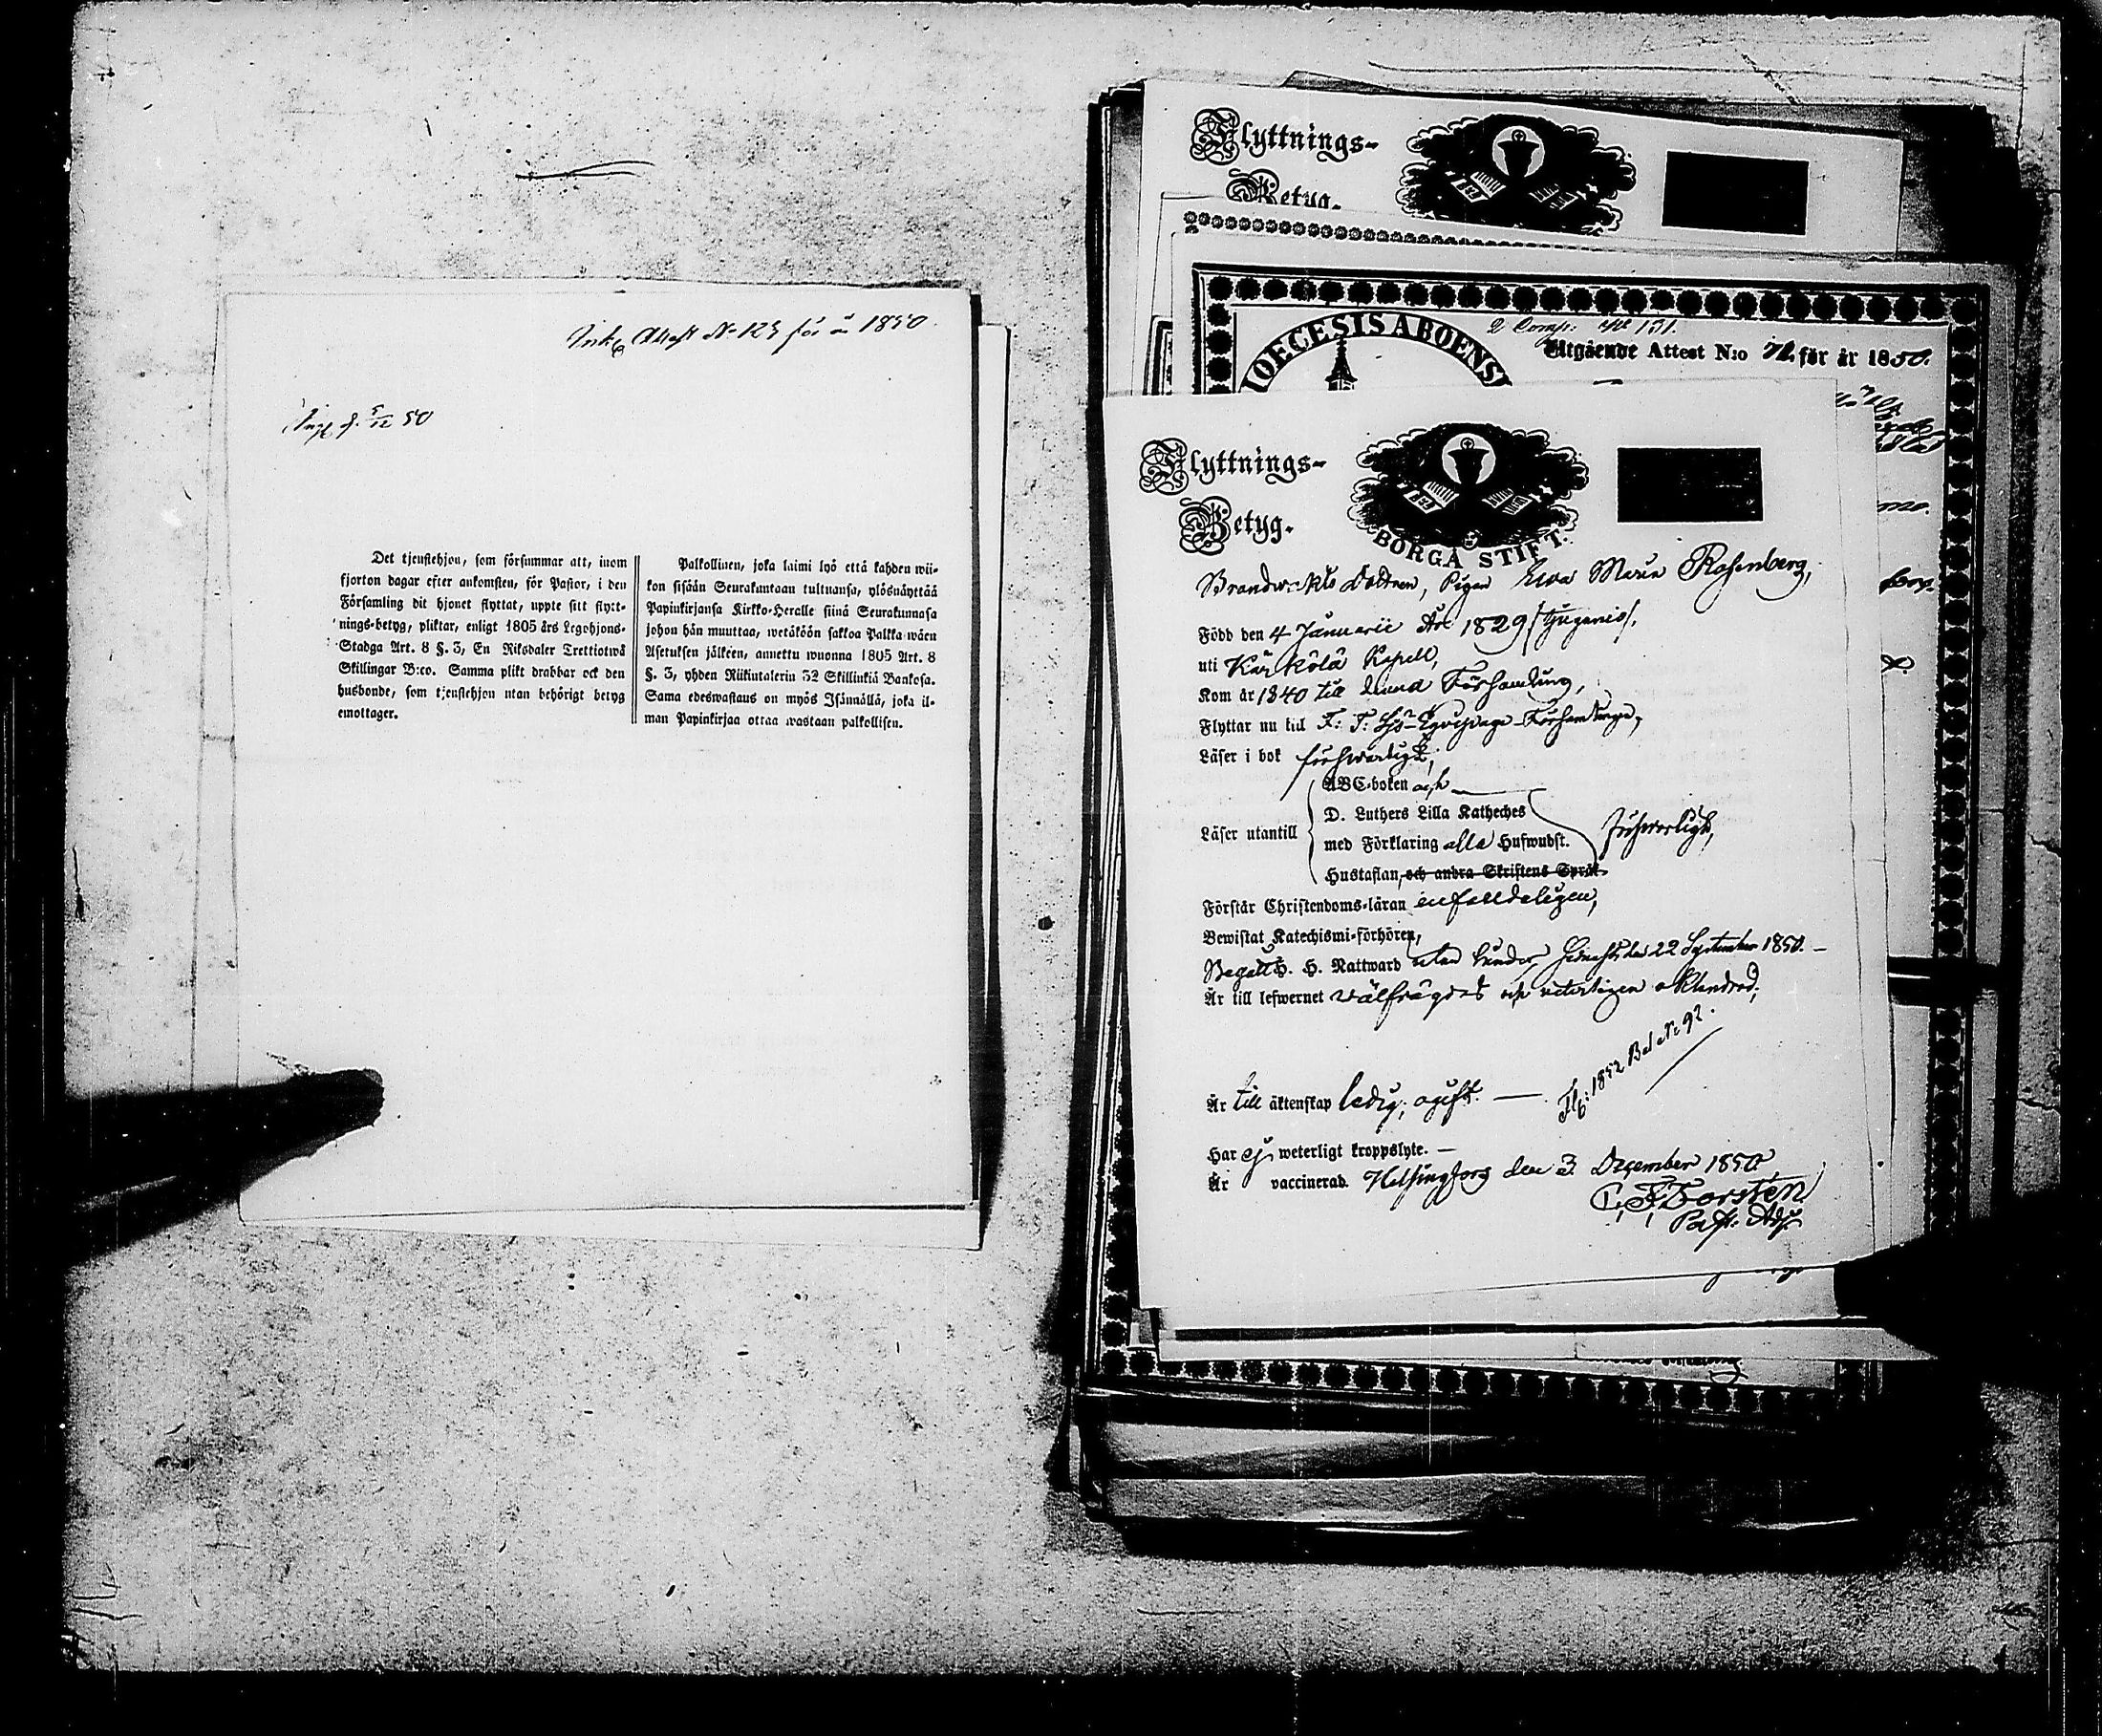 Ink. Attest No 125 för år 1850.
Ang. d. 5/12 50
Det tjenstehjon, som försummar att, inom
fjorton dagar efter ankomsten, för Pastor, i den
Församling dit hjonet flyttat, uppte sitt flytt-
nings-betyg, pliktar, enligt 1805 års Legohjons-
Stadga Art. 8 §. 3, En Riksdaler Trettiotwå
Skillingar B:co. Samma plikt drabbar ock den
husbonde, som tjenstehjon utan behörigt betyg
emottager.
Palkollinen, joka laimi lyö että kahden wii-
kon sisään Seurakuntaan tultuansa, ylösnäyttää
Papinkirjansa Kirkko-Heralle siinä Seurakunnasa
johon hän muuttaa, wetäköön sakkoa Palkka-wäen
Asetuksen jälkeen, annettu wuonna 1805 Art. 8
§. 3, yhden Riikintalerin 32 Skillinkiä Bankosa.
Sama edeswastaus on myös Isännällä, joka il-
man Papinkirjaa ottaa wastaan palkollisen.
Flyttnings-
Betyg.
DIOECESIS ABOENSI
2 Comp: No 131.
Utgående Attest N:o 71 för år 1850.
Flyttnings-
Betyg.
BORGÅ STIFT.
Pigan Ewa Maria Rosenberg,
Född den 4 Januarii År 1829
uti Kärkölä Kapell,
Kom år 1840 till denna Församling,
Flyttar nu till F: F: Sjö-Equipage-Församlingen,
Läser i bok försvarligt,
ABC-boken och
D. Luthers Lilla Katheches
Läser utantill
med Förklaring alla Hufwudst.
försvarligt,
Hustaflan, och andra Skriftens Språk
Förstår Christendoms-läran enfaldeligen,
Bewistat Katechismi-förhören,
Begått H. H. Nattward utan hinder, senast den 22 September 1850. —
Är till lefwernet välfrägdad och veterligen oklandrad;
Flyt: 1852 Bet No 92.
Är till äktenskap ledig, ogift. —
Har ej weterligt kroppslyte. —
Är vaccinerad. Helsingfors den 3 December 1850
C. F. Borsten
Past. Adj.